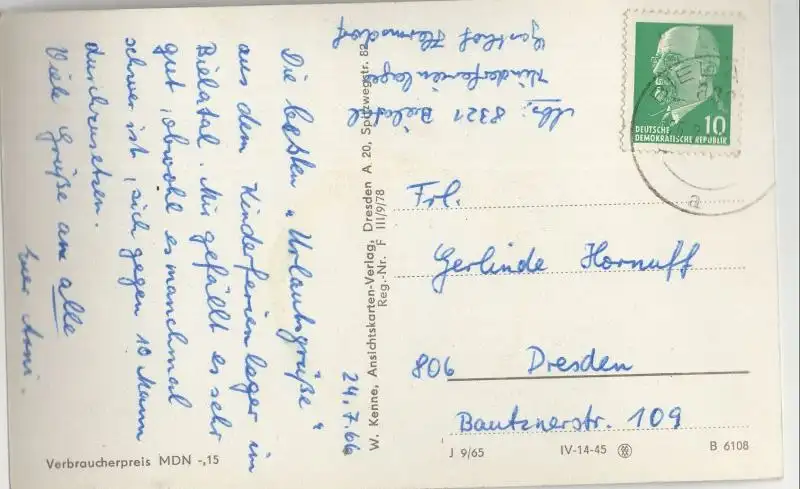 24.7.66
Die besten „Urlaubsgrüße“
aus dem Kinderferienlager im
Bielatal. Mir gefällt es sehr
gut, obwohl es manchmal
schwer ist, sich gegen 10 Mann
durchzusetzen.
Viele Grüße an alle
Euer
Abs.: 8321 Bielatal
Kinderferienlager
Gasthof Hermsdorf
W. Kenne, Ansichtskarten-Verlag, Dresden A 20, Spitzwegstr. 82
Reg.-Nr. F III/9/78
DEUTSCHE
DEMOKRATISCHE REPUBLIK
10
a
Frl.
Gerlinde Hornuff
806 Dresden
Bautznerstr. 109
Verbraucherpreis MDN -,15
J 9/65 IV-14-45 B 6108